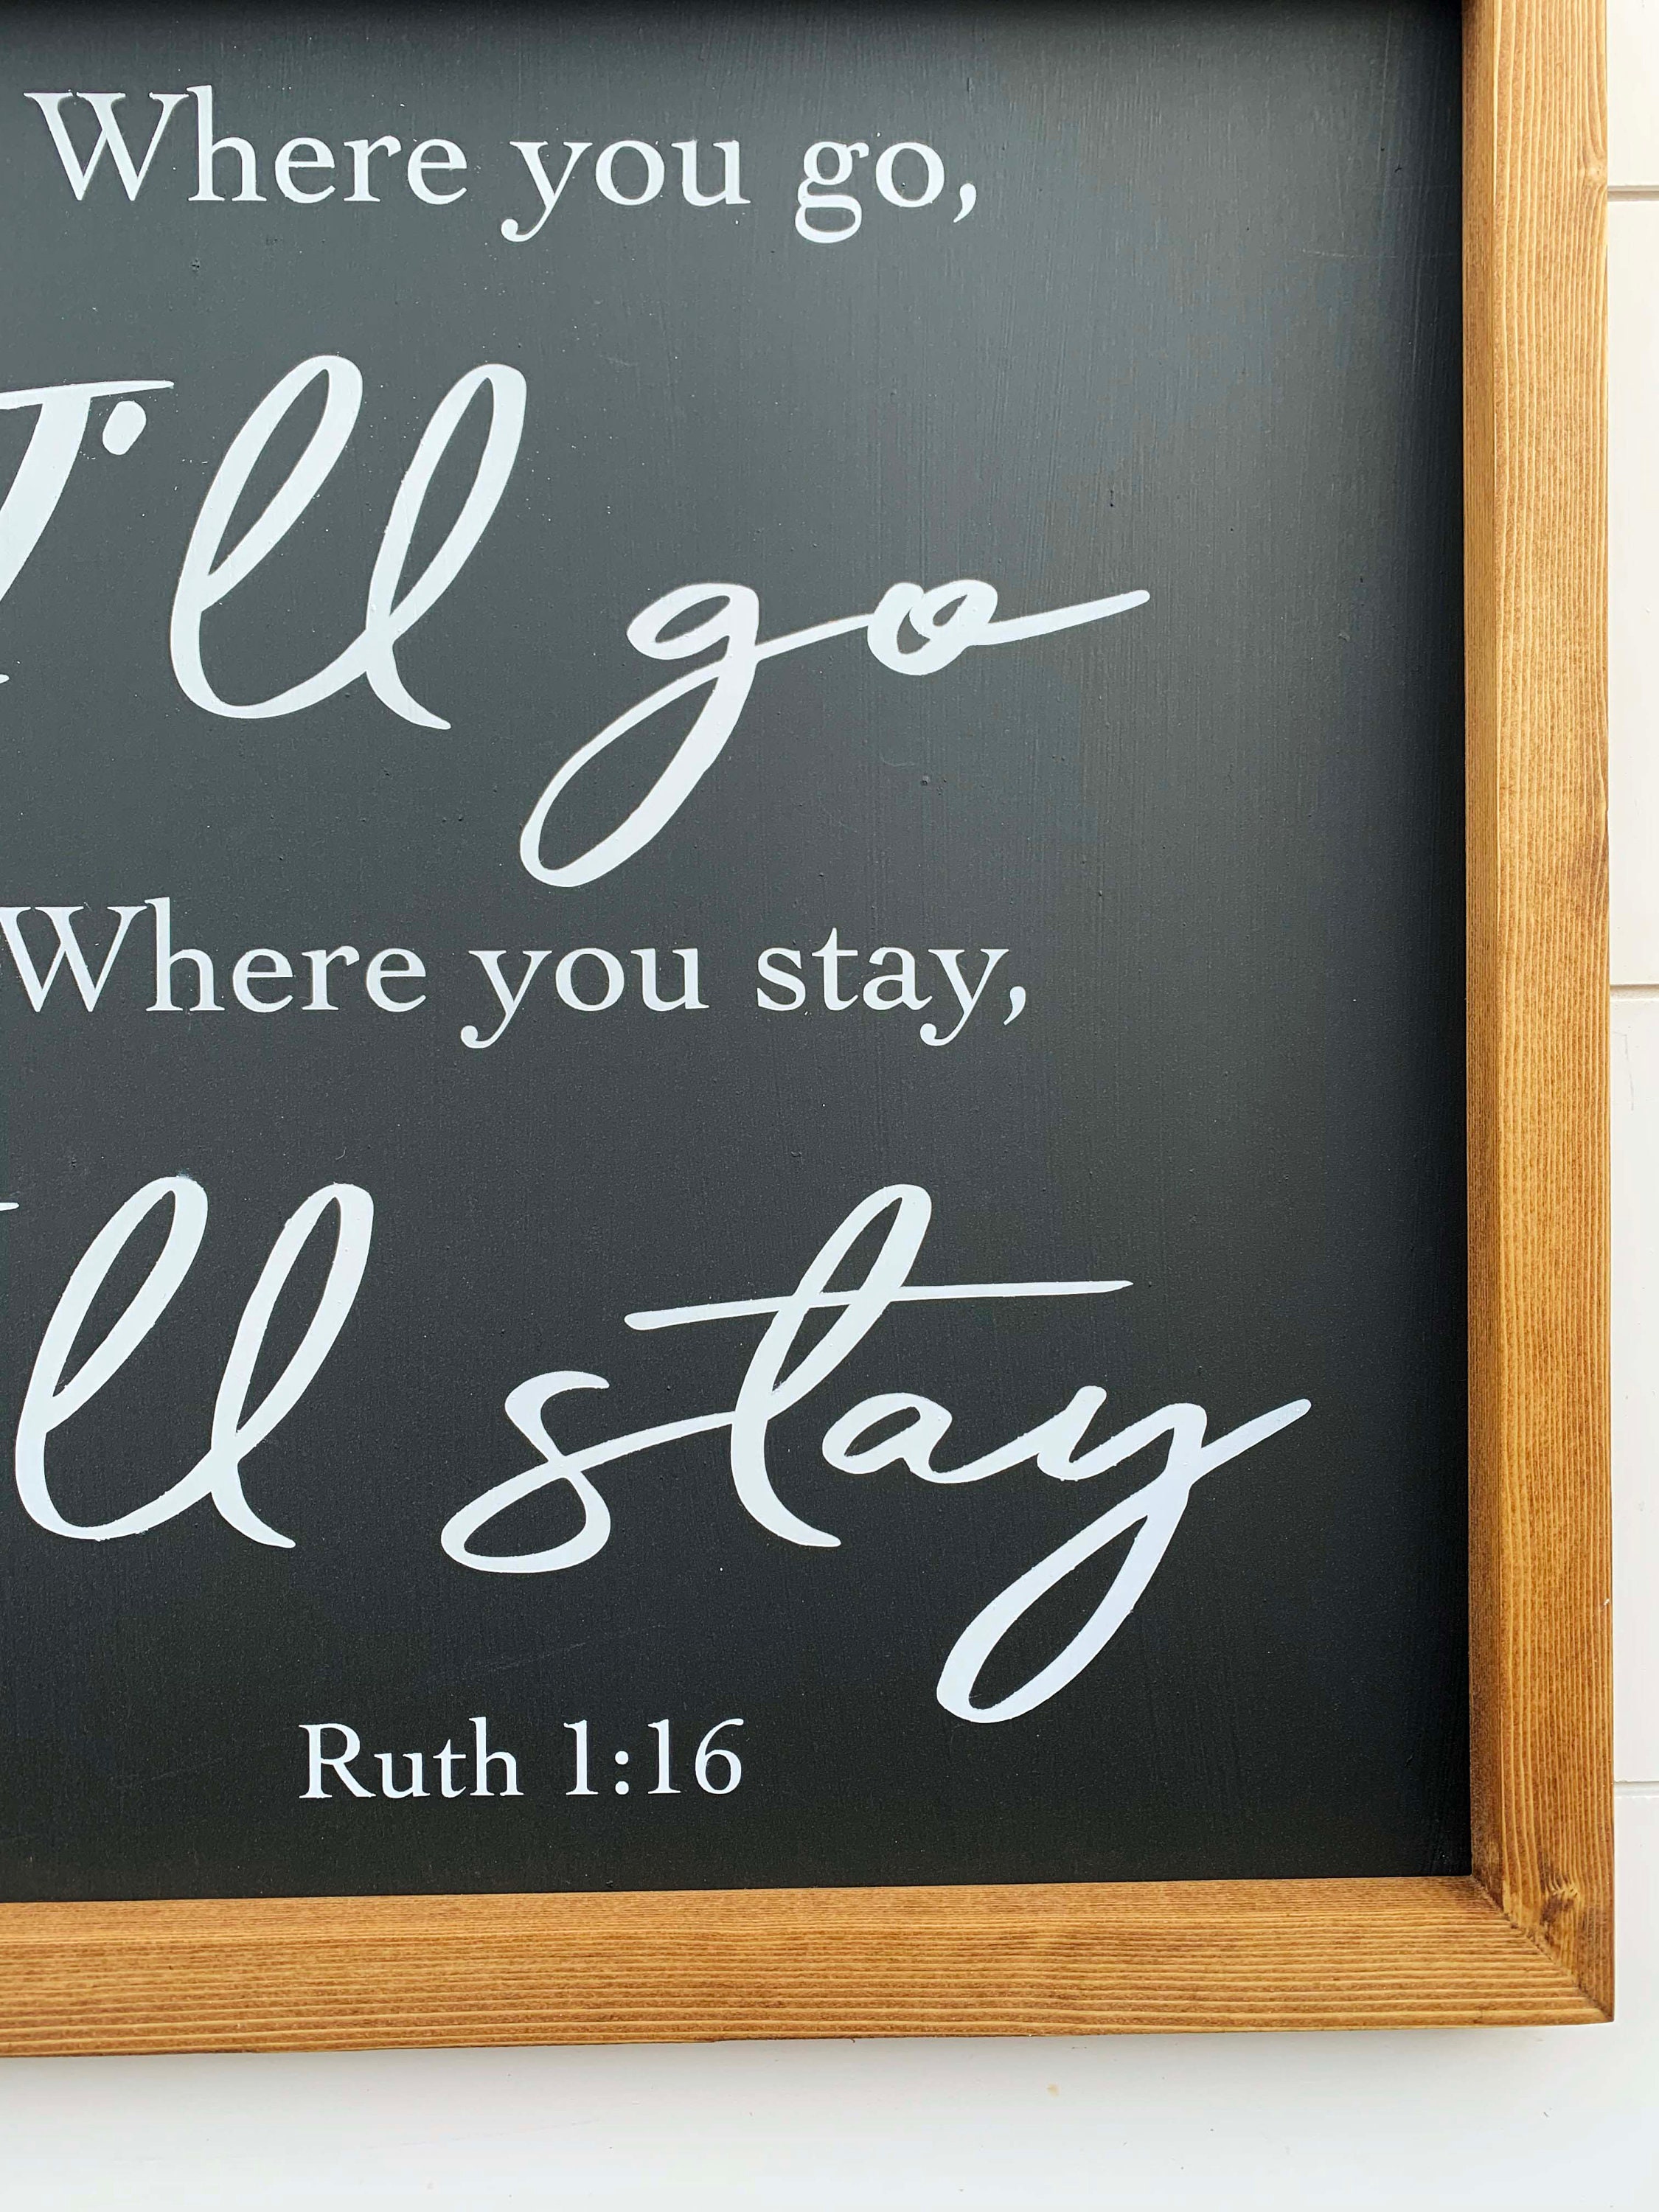 Where you go,
I'll go
Where you stay,
I'll stay
Ruth 1:16